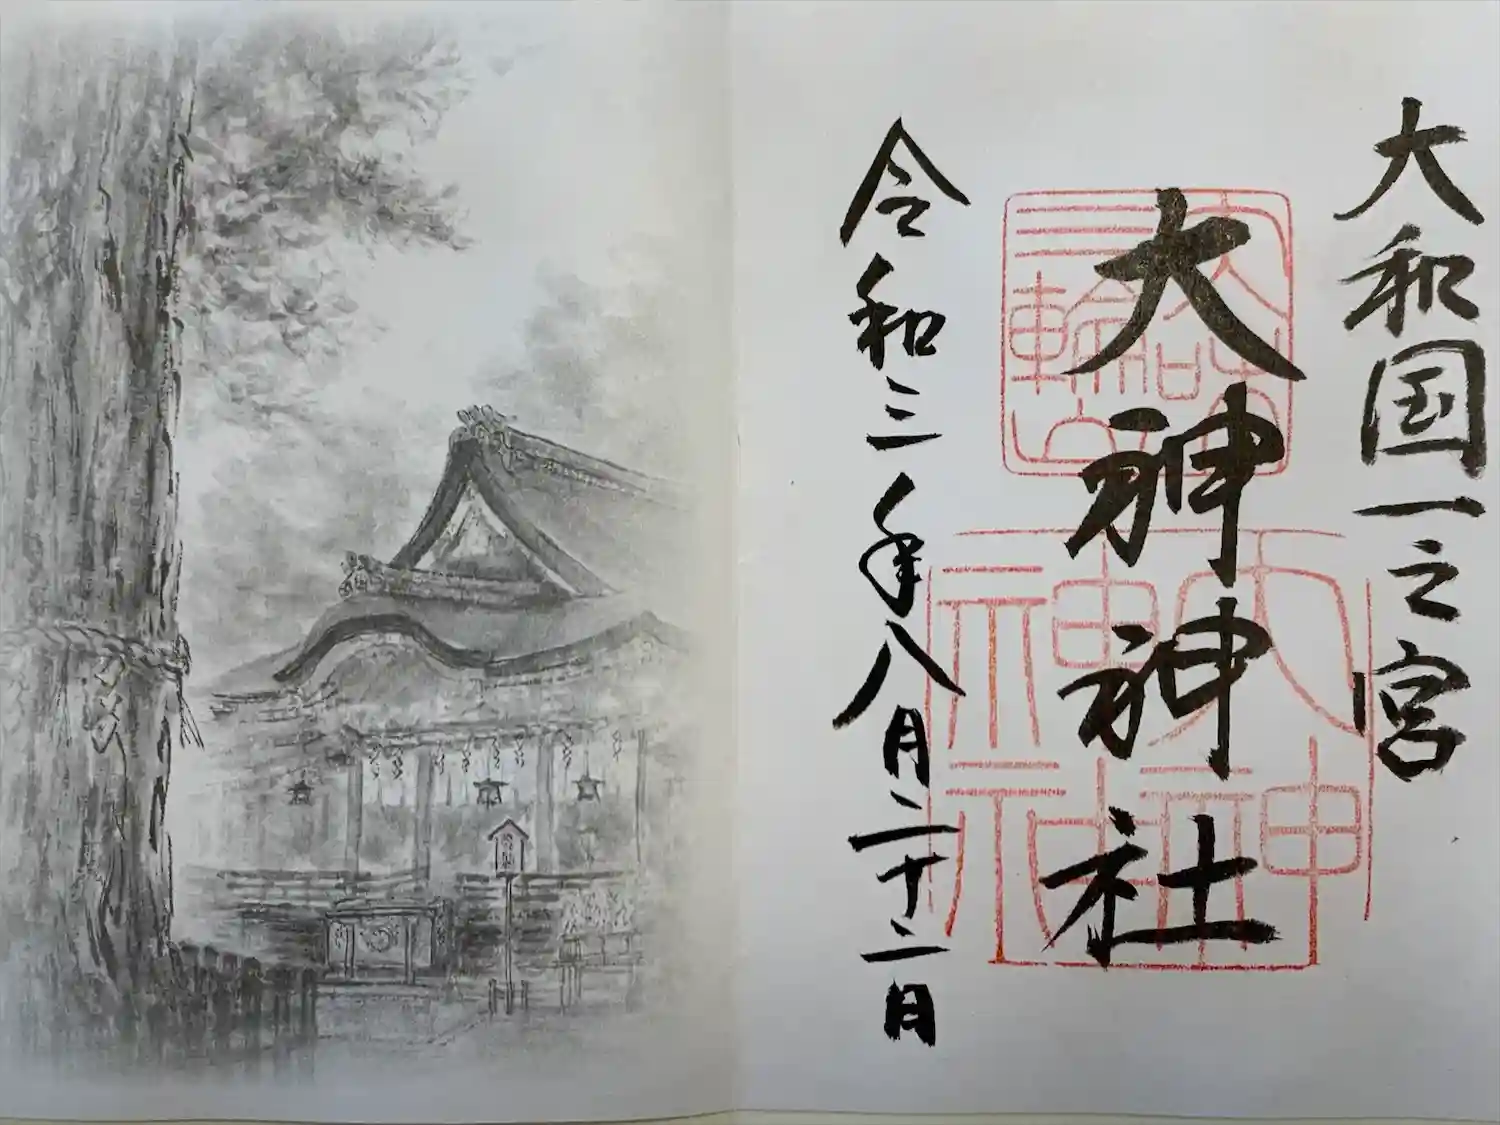 大和国一之宮
大神神社
三輪山
大神
神社
令和三年八月二十二日